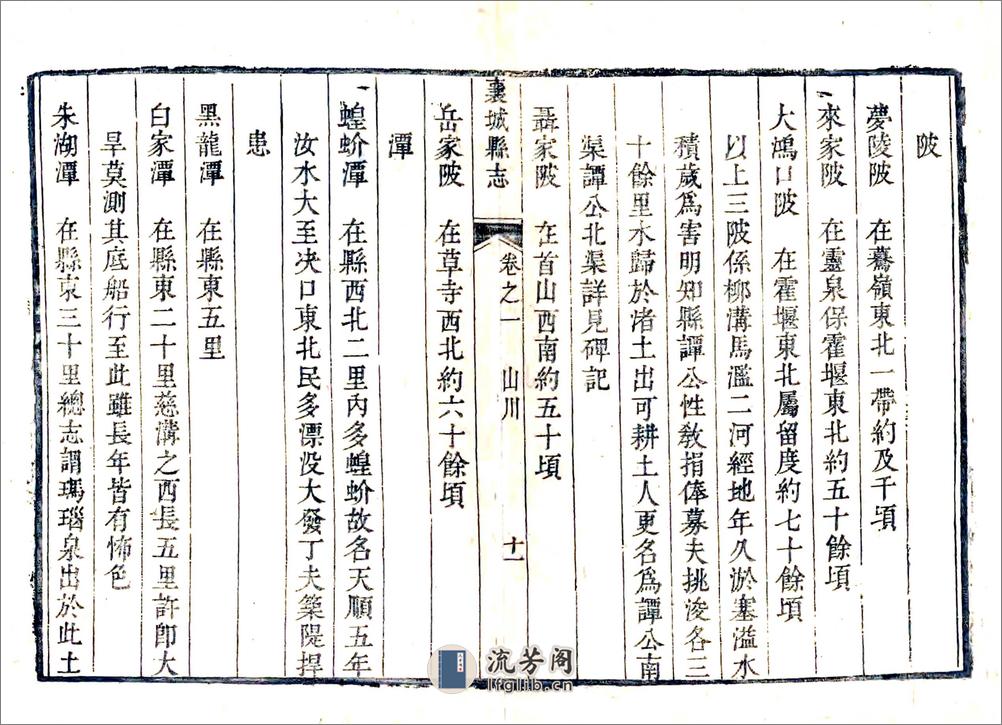 陂
夢陵陂 在鶱嶺東北一帶約及千頃
來家陂 在靈泉保霍堰東北約五十餘頃
大鴻口陂 在霍堰東北屬留度約七十餘頃
以上三陂係柳溝馬灃二河經地年久淤塞溢水
積歲爲害明知縣譚公性敎捐俸募夫挑浚各三
十餘里水歸於渚土出可耕土人更名爲譚公南
渠譚公北渠詳見碑記
聶家陂 在首山西南約五十頃
襄城縣志 卷之一 山川 十一
岳家陂 在草寺西北約六十餘頃
潭
蝗蚧潭 在縣西北二里內多蝗蚧故名天順五年
汝水大至决口東北民多漂没大發丁夫築隄捍
患
黑龍潭 在縣東五里
白家潭 在縣東二十里慈溝之西長五里許卽大
旱莫測其底船行至此雖長年皆有怖色
朱湖潭 在縣東三十里總志謂瑪瑙泉出於此土
流芳阁
lfglib.cn